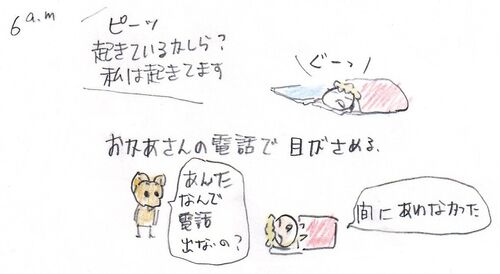 6 a.m
ピーッ
起きているかしら?
私は起きてます
ぐーっ
おかあさんの電話で 目がさめる、
あんた
なんで
電話
出ないの?
間にあわなかった